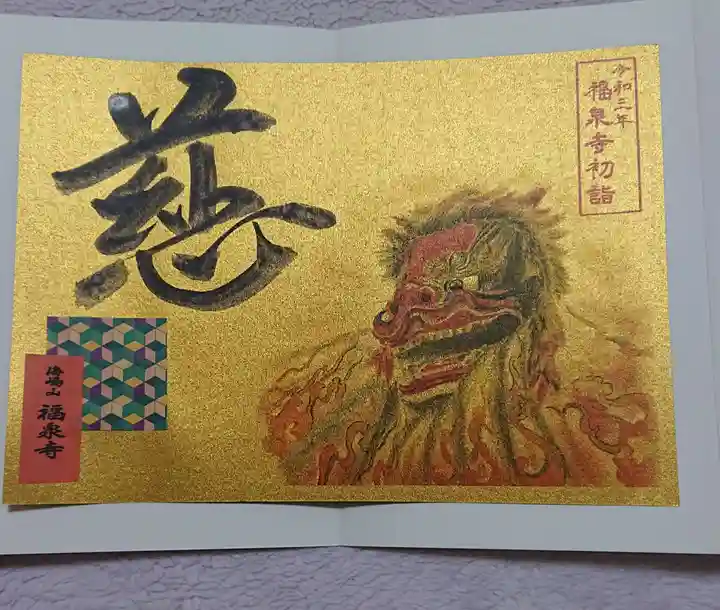 令和三年
福泉寺初詣
慈
海嶋山
福泉寺